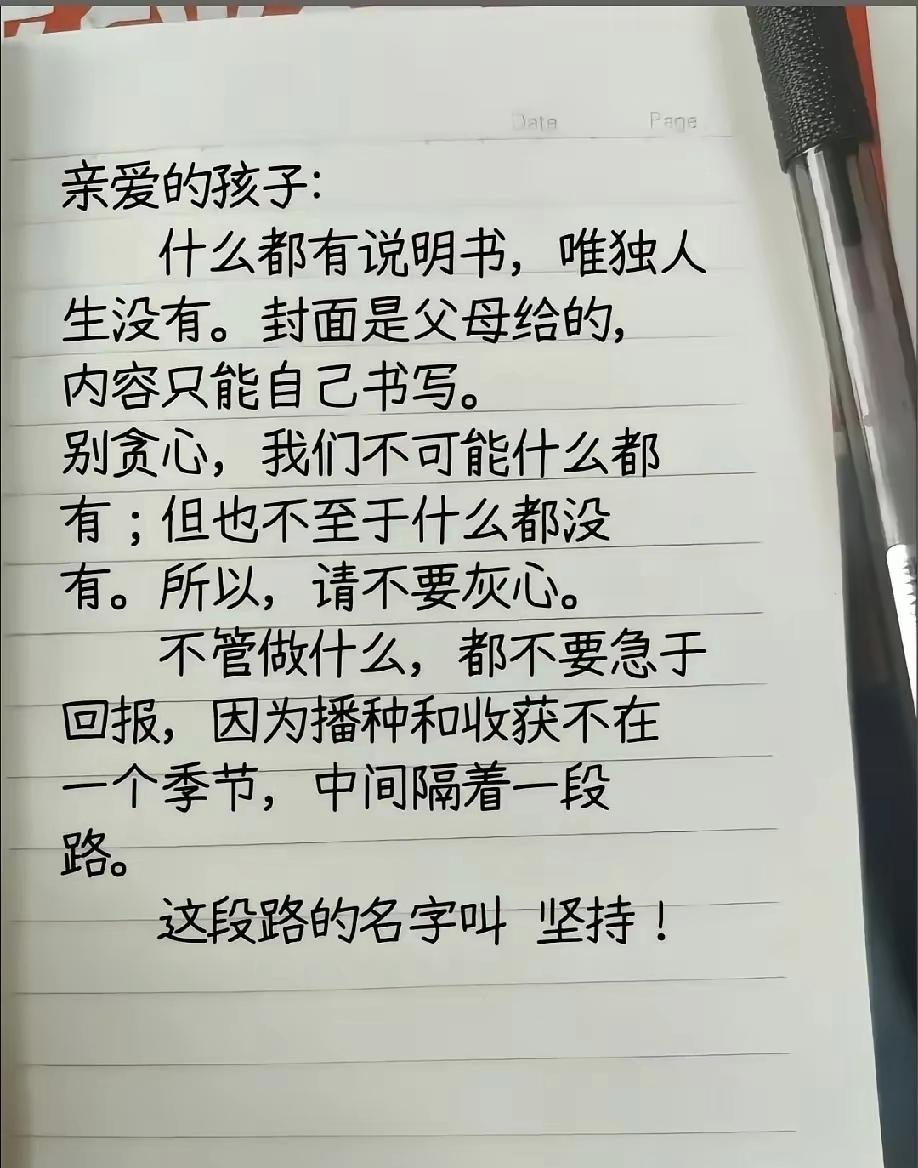 Date Page
亲爱的孩子：
什么都有说明书，唯独人
生没有。封面是父母给的，
内容只能自己书写。
别贪心，我们不可能什么都
有；但也不至于什么都没
有。所以，请不要灰心。
不管做什么，都不要急于
回报，因为播种和收获不在
一个季节，中间隔着一段
路。
这段路的名字叫 坚持！